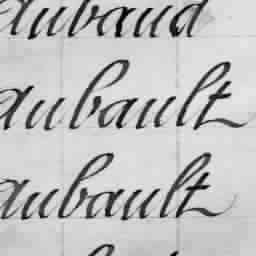 aubaud
aubault
aubault